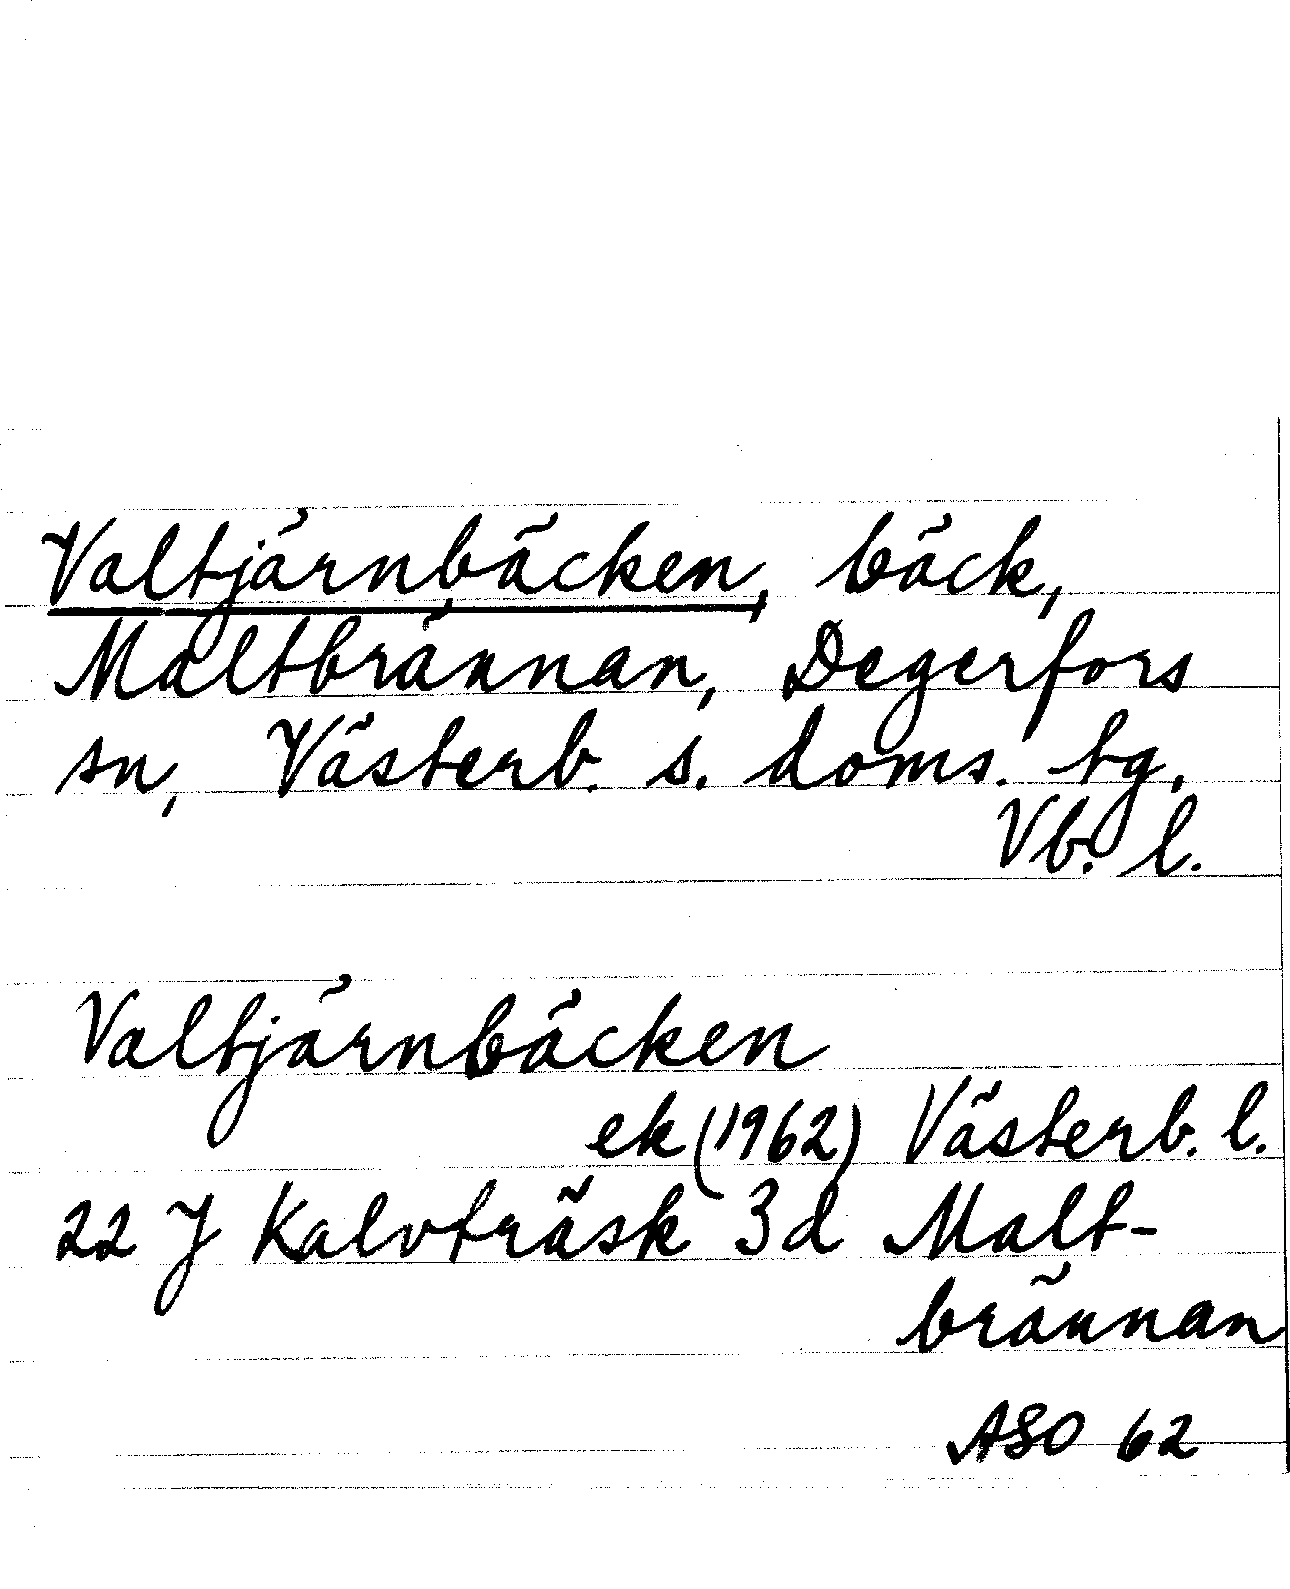 Valtjärnbäcken, bäck,
Maltbrännan, Degerfors
sn, Västerb. s. doms. tg.
Vb. l.
Valtjärnbäcken
ek (1962) Västerb. l.
22 J Kalvträsk 3d Malt-
brännan
ASO 62